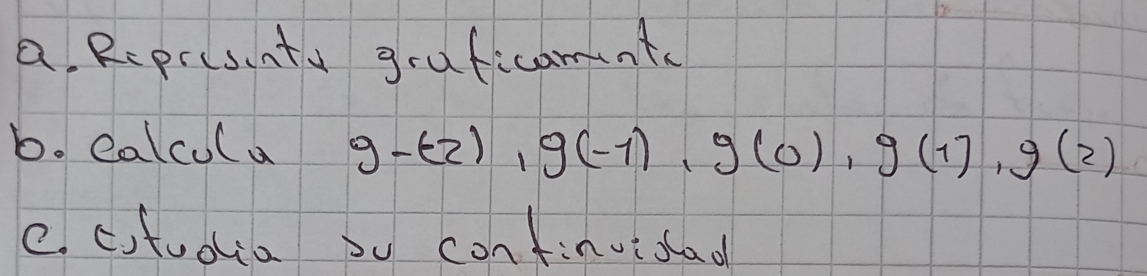 a. Representa graficamente
b. Calcula g-(2), g(-1), g(0), g(1), g(2)
c. Estudia su continuidad